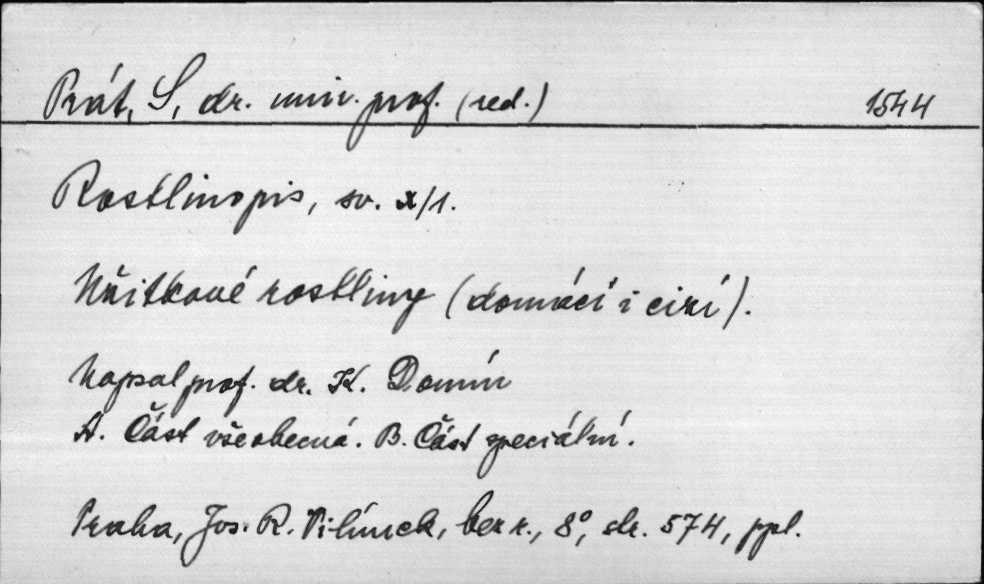 Prát, S, dr. univ. prof. (red.) 1544
Rostlinopis, sv. X/1.
Užitkové rostliny (domácí i cizí).
Napsal prof. dr. K. Domin
A. Část všeobecná. B. Část speciální.
Praha, Jos. R. Vilímek, bez r., 8°, str. 574, ppl.